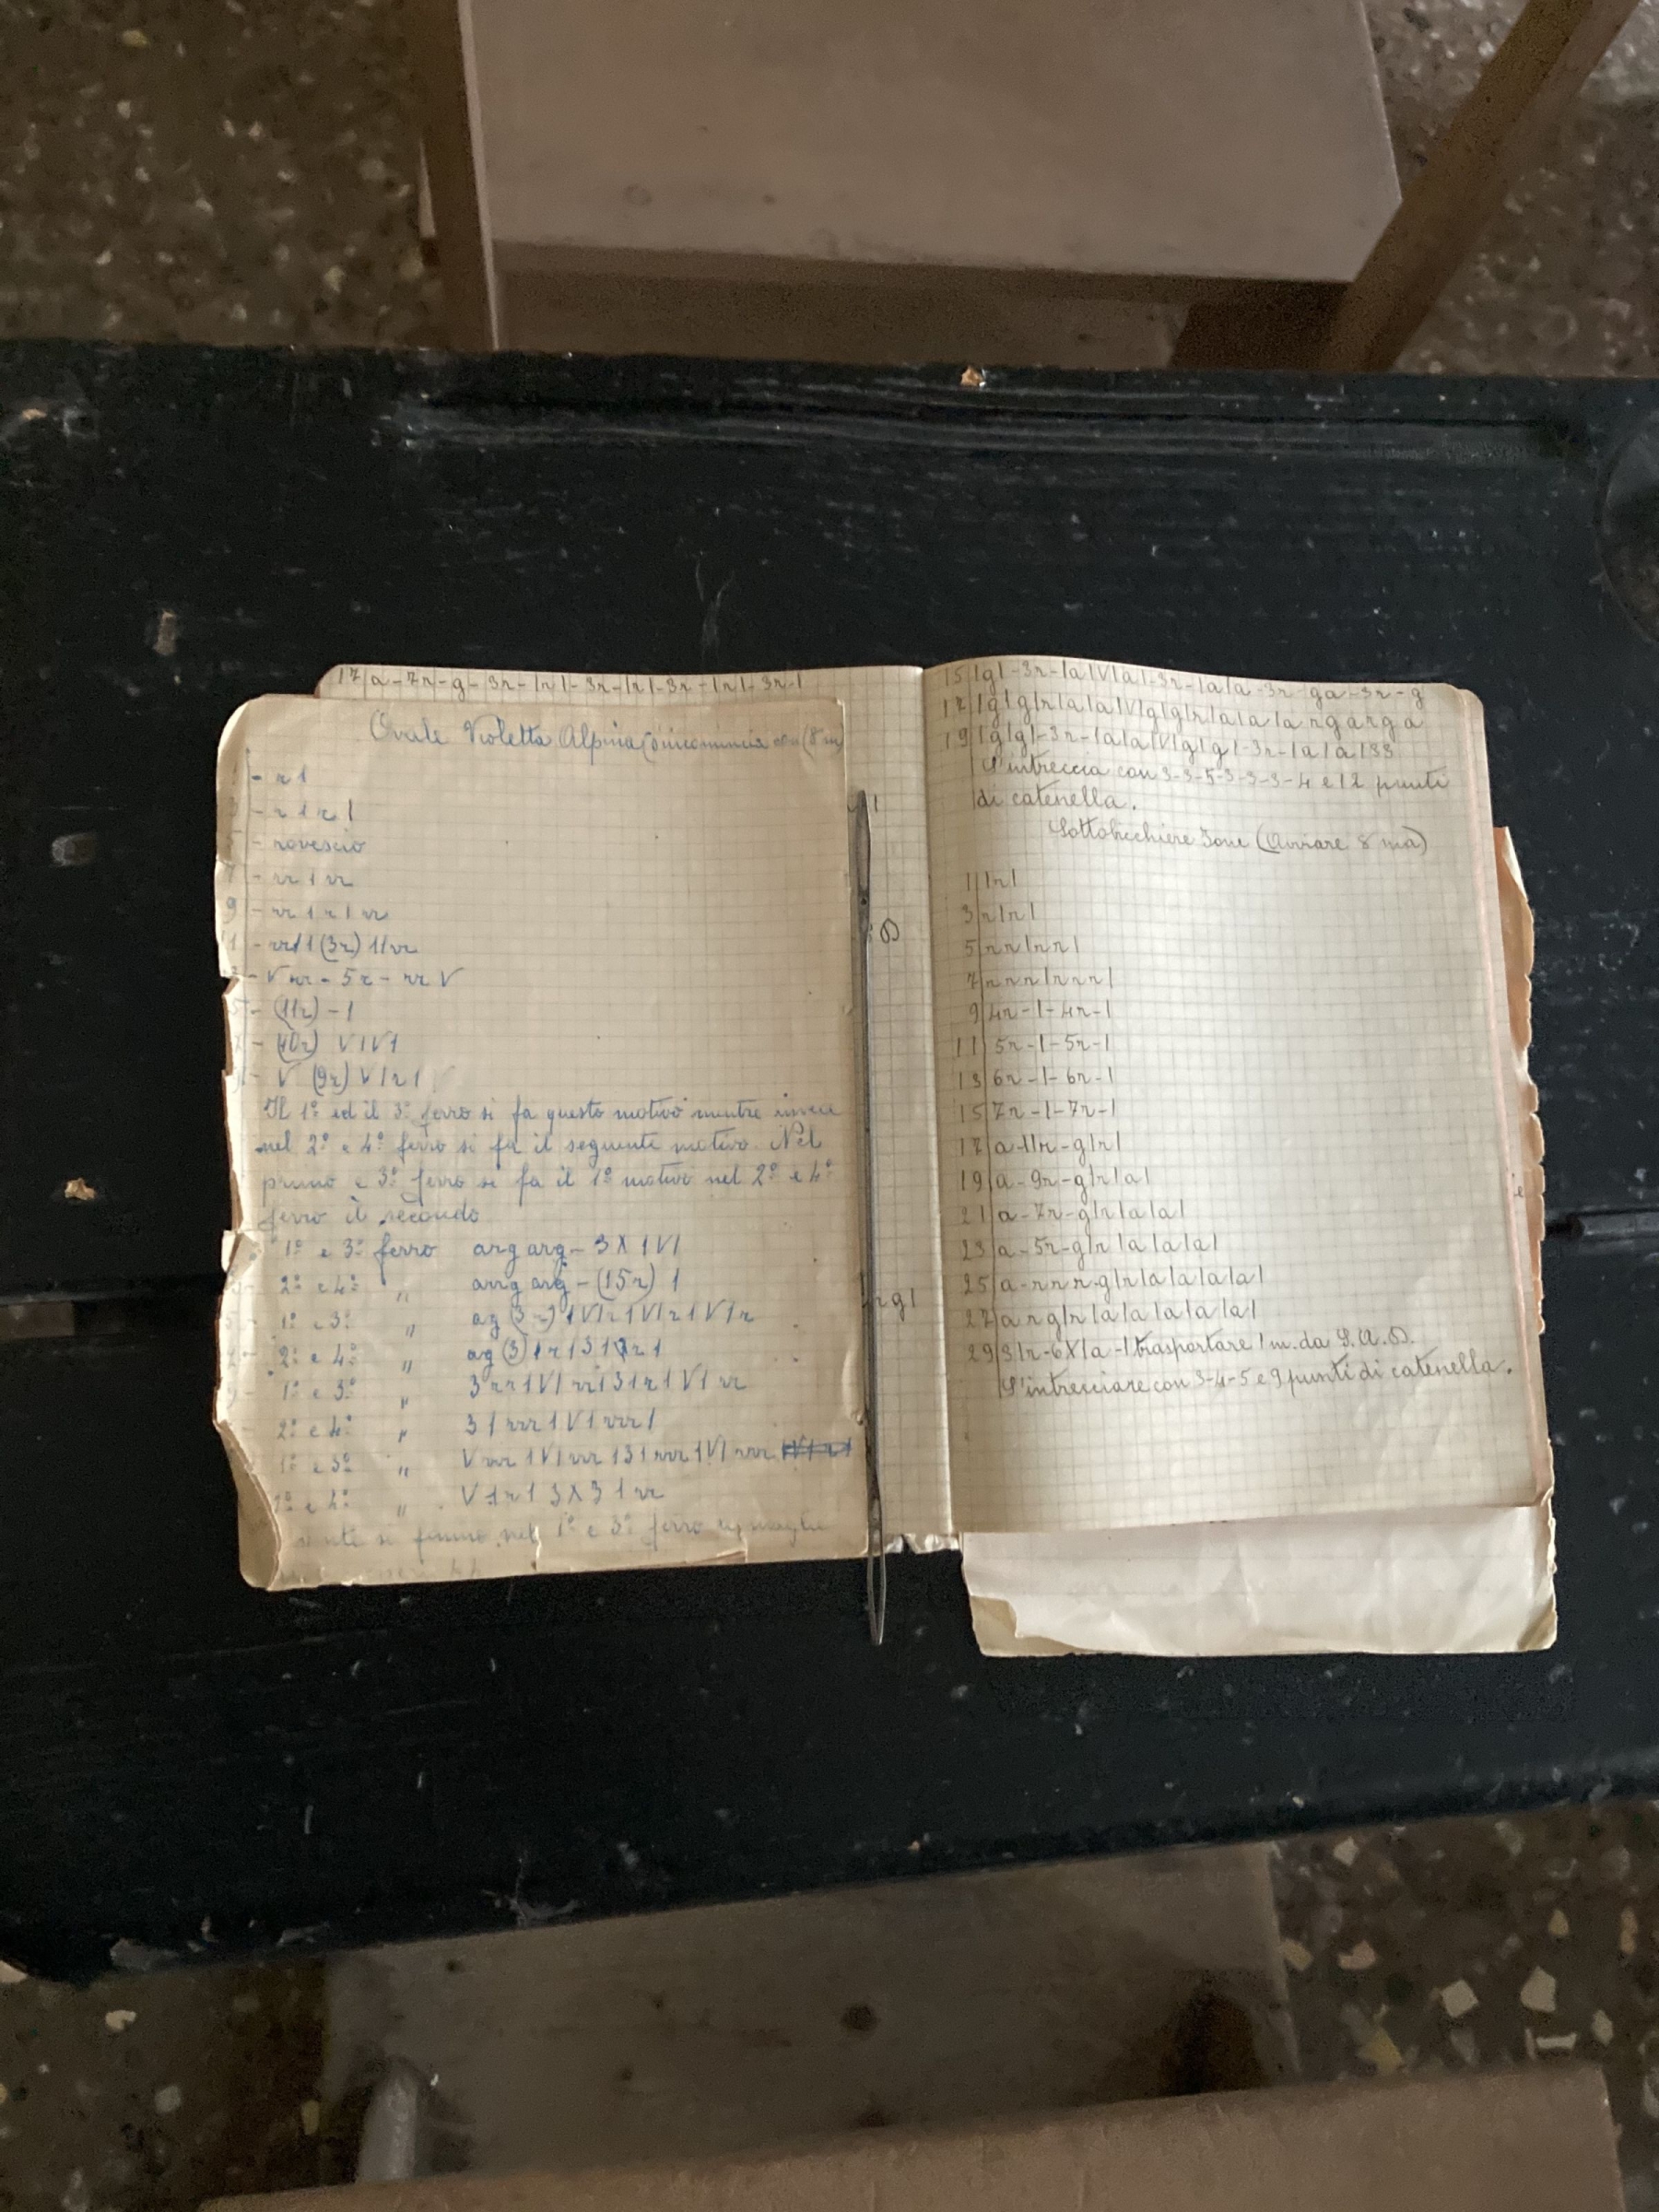 17|a-7r-g-3r-|r|-3r-|r|-3r-|r|-3r-|
Ovale Violetta Alpina (si incomincia con (8 m)
- r 1
3 - r 1 r 1
- rovescio
7 - rr 1 rr
9 - rr 1 r 1 rr
1 - rr11(3r)11rr
- V rr - 5r - rr V
- (11r) - 1
- (10r) V1V1
- V (9r) V1r1
Il 1° ed il 3° ferro si fa questo motivo mentre invece
nel 2° e 4° ferro si fa il seguente motivo. Nel
primo e 3° ferro si fa il 1° motivo nel 2° e 4°
ferro il secondo
1° e 3° ferro arg arg - 3X1V1
2° e 4° " arrg arg - (15r) 1
1° e 3° " ag (3r) 1V1r1V1r1V1r
2° e 4° " ag (3) 1r131
1° e 3° " 3rr1V1rr131r1V1rr
2° e 4° " 31rrr1V1rrr1
1° e 3° " Vrrr1V1rrr131rrr1V1rrr
2° e 4° " V1r13X31rr
si finno nel 1° e 3° ferro
1
D
rg1
15|g|-3r-|a|V|a|-3r-|a|a-3r-ga-3r-g
17|g|g|r|a|a|V|g|g|r|a|a|a rgarga
19|g|g|-3r-|a|a|V|g|g|-3r-|a|a|33
S'intreccia con 3-3-5-3-3-3-4 e 12 punti
di catenella.
Sottobicchiere Jone (Avviare 8 ma)
1|1r|
3|r|r|
5|rr|rr|
7|rrr|rrr|
9|4r-1-4r-1
11|5r-1-5r-1
13|6r-1-6r-1
15|7r-1-7r-1
17|a-11r-g|r|
19|a-9r-g|r|a|
21|a-7r-g|r|a|a|
23|a-5r-g|r|a|a|a|
25|a-rrr-g|r|a|a|a|a|
27|arg|r|a|a|a|a|a|
29|3|r-6X|a-|trasportare 1 m. da S.A.D.
S'intrecciare con 3-4-5 e 9 punti di catenella.